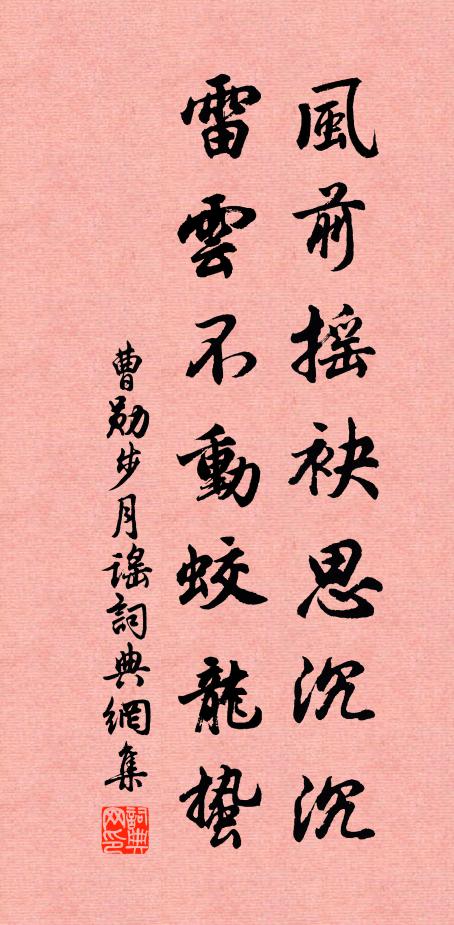 風前摇袂思沉沉
雷雲不動蛟龍蟄
曹勛步月謡詞典網集
詞典网印